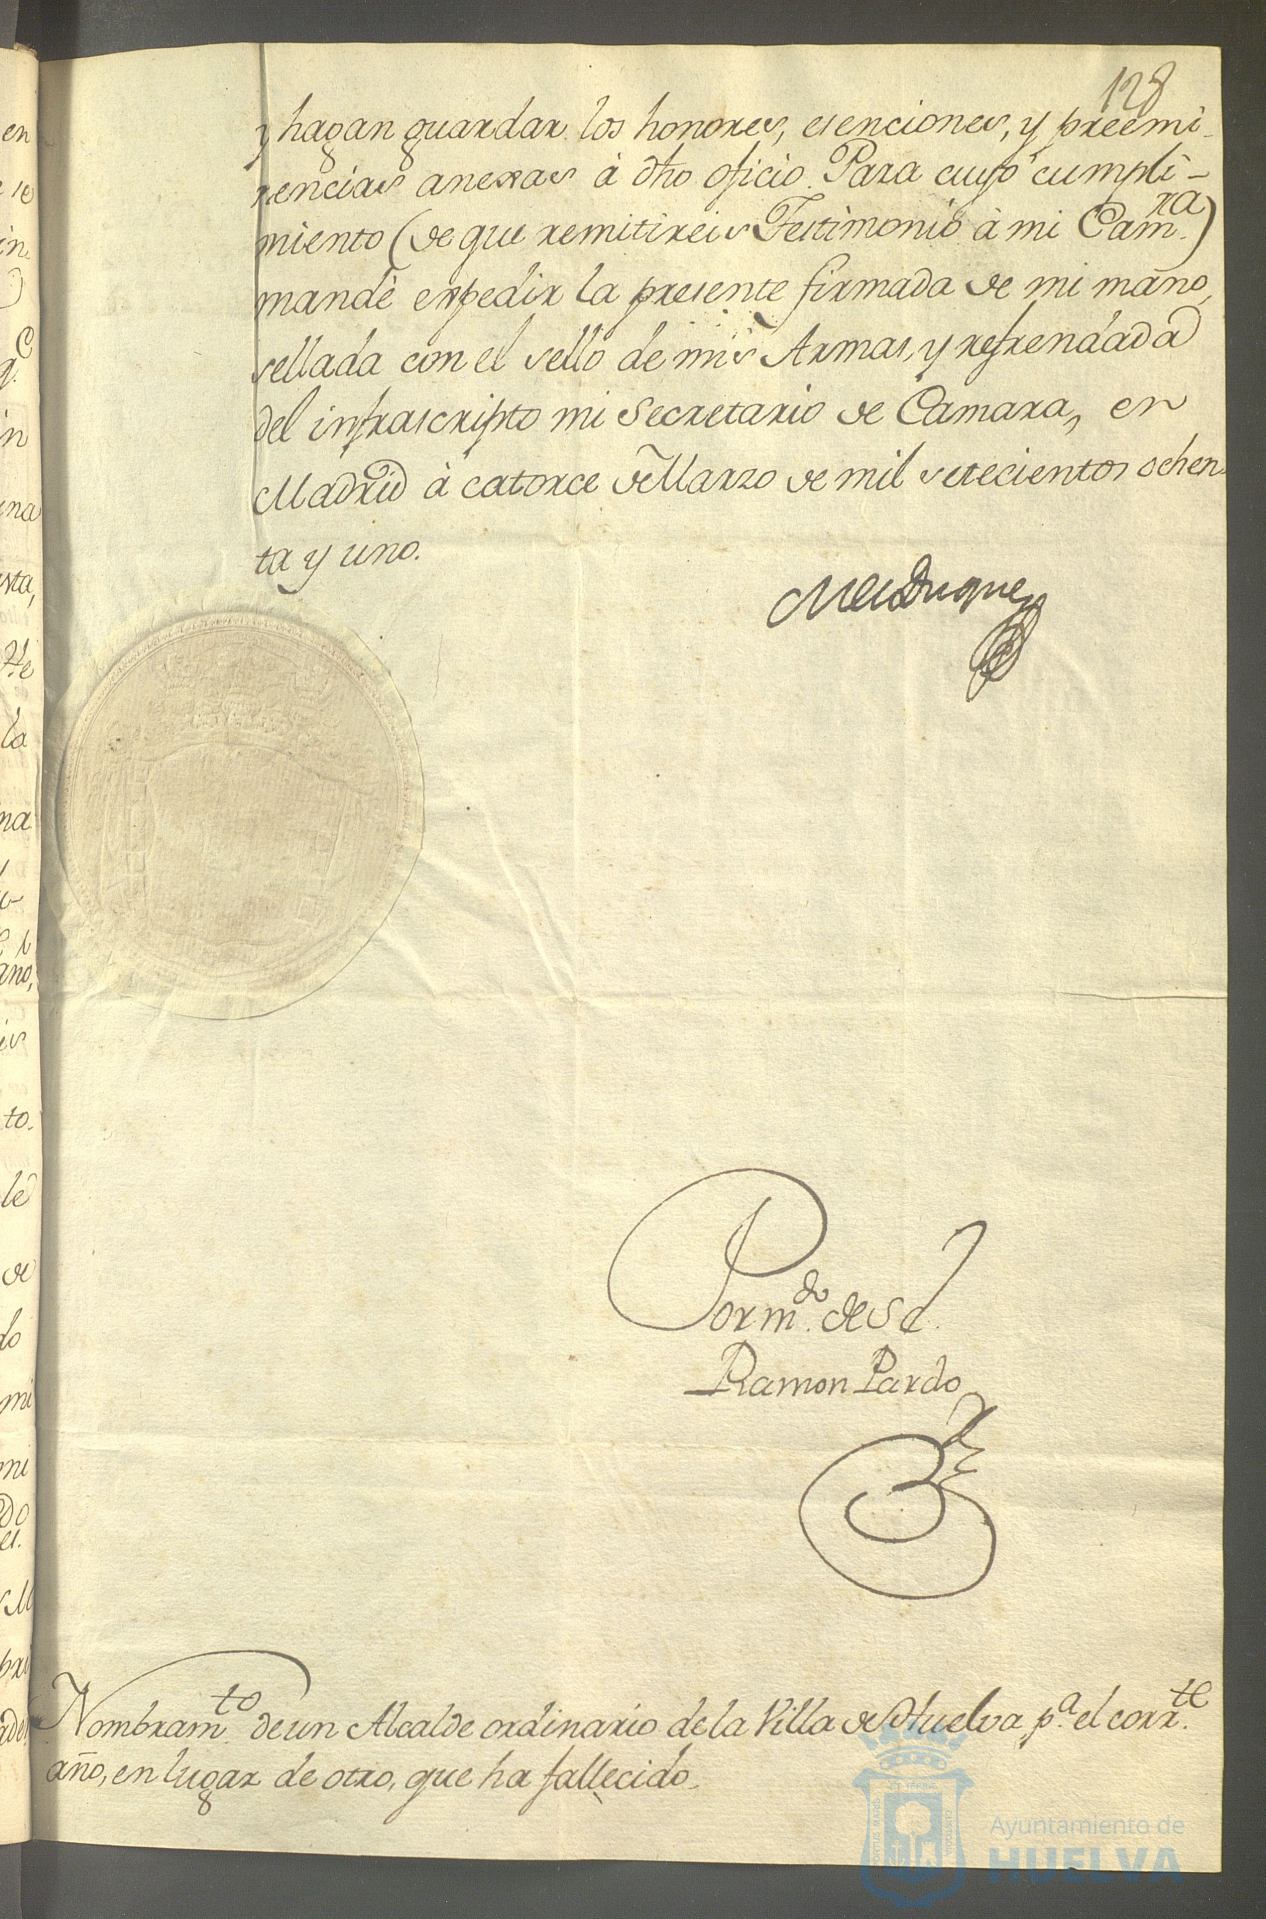 128
y hagan guardar los honores, esenciones, y preemi-
nencias anexas à dho oficio. Para cuyo cumpli-
miento (de que remitireis Testimonio à mi Cam.ra)
mandè expedir la presente firmada de mi mano,
sellada con el sello de mis Armas, y refrendada
del infrascripto mi Secretario de Camara, en
Madrid à catorce de Marzo de mil setecientos ochen-
ta y uno.
Duque
Por m.do de S E.
Ramon Pardo
Nombram.to de un Alcalde ordinario de la Villa de Huelva p.a el corr.te
año, en lugar de otro, que ha fallecido.
Ayuntamiento de
HUELVA